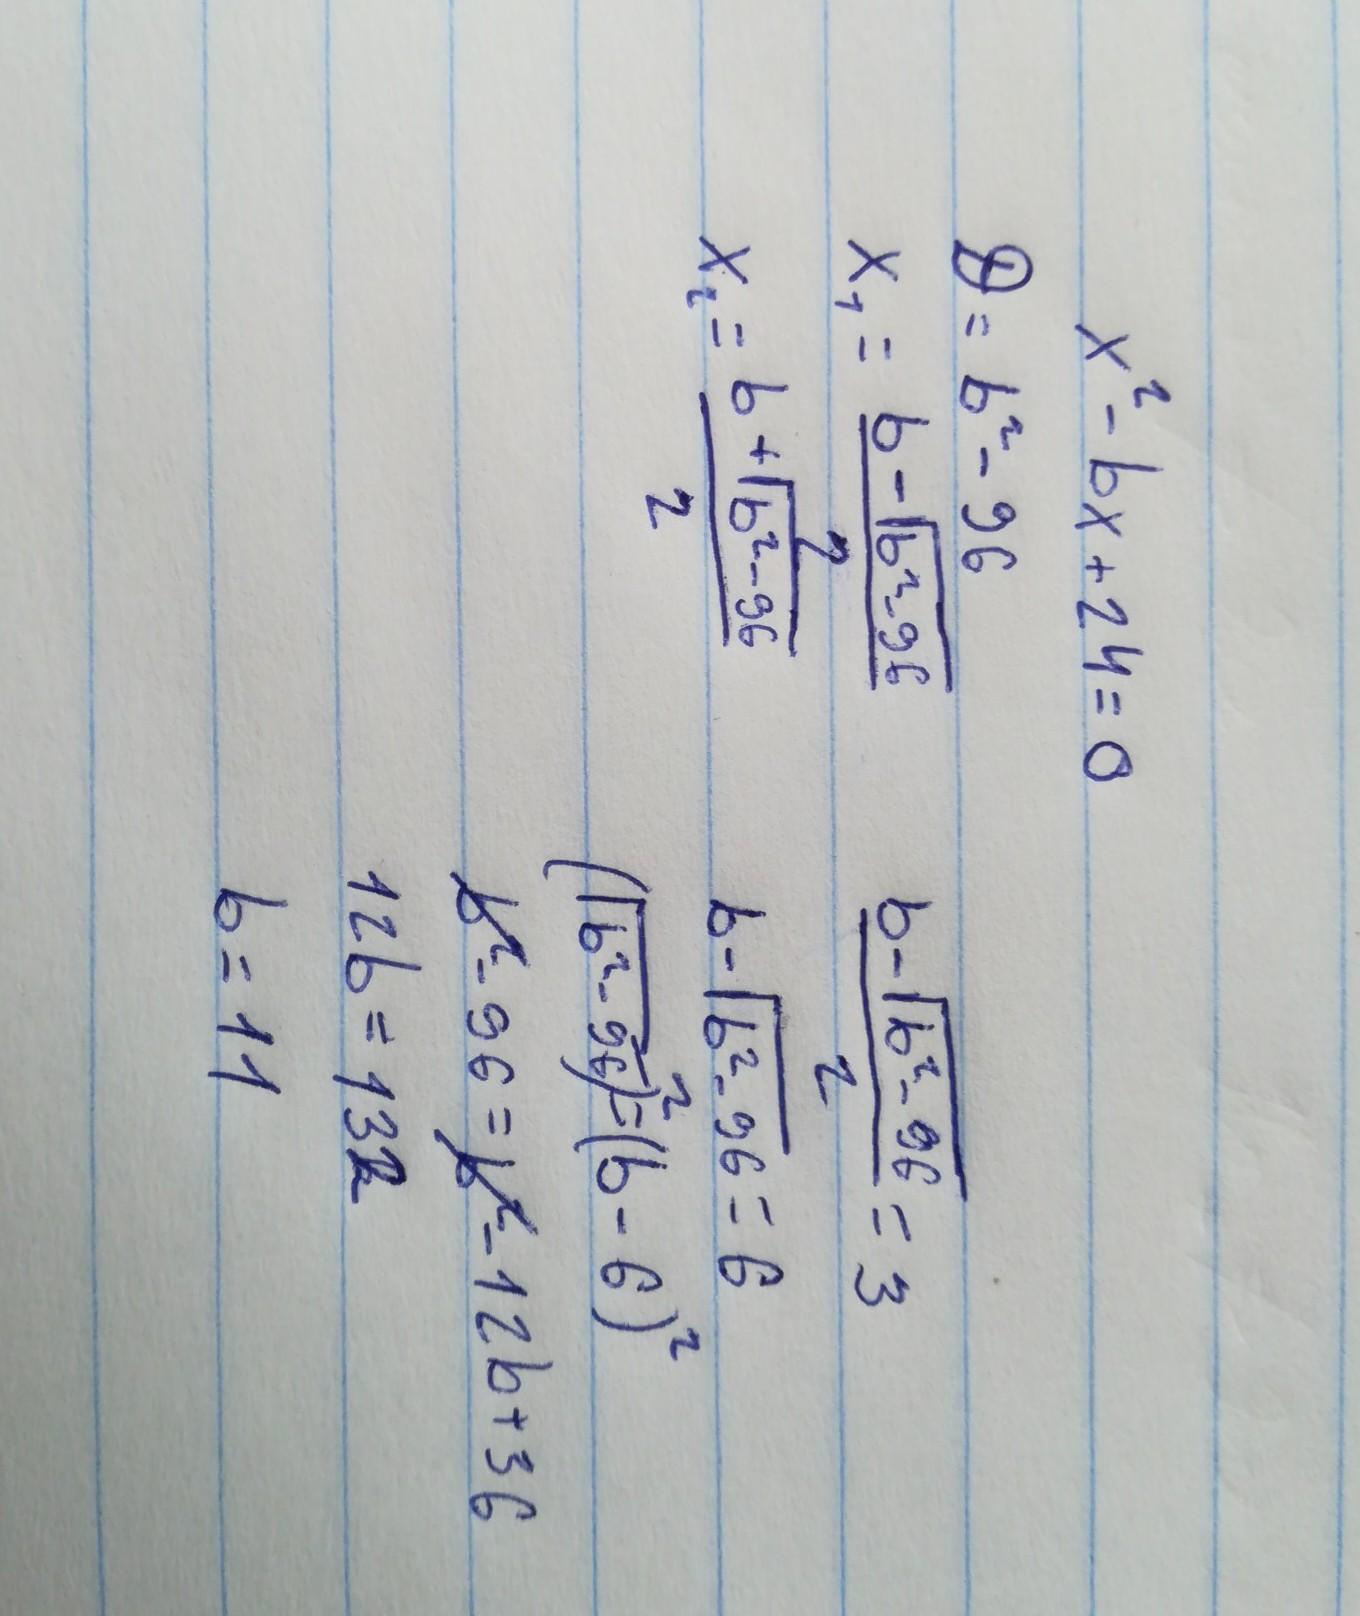 x² - bx + 24 = 0
D = b² - 96
x₁ = (b - √(b² - 96)) / 2
x₂ = (b + √(b² - 96)) / 2
(b - √(b² - 96)) / 2 = 3
b - √(b² - 96) = 6
(√(b² - 96))² = (b - 6)²
b² - 96 = b² - 12b + 36
12b = 132
b = 11